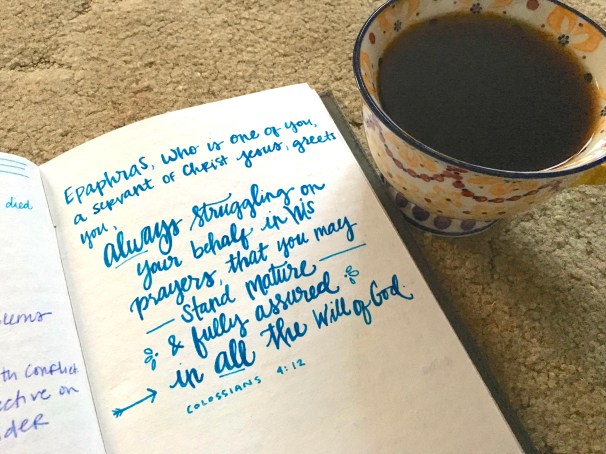 died
th Conflict
ctive on
der
Epaphras, who is one of you,
a servant of Christ Jesus, greets
you,
always struggling on
your behalf in his
prayers, that you may
stand mature
& fully assured
in all the will of God.
COLOSSIANS 4:12